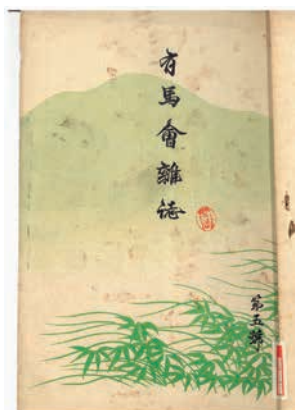 有馬會雜誌
第五號